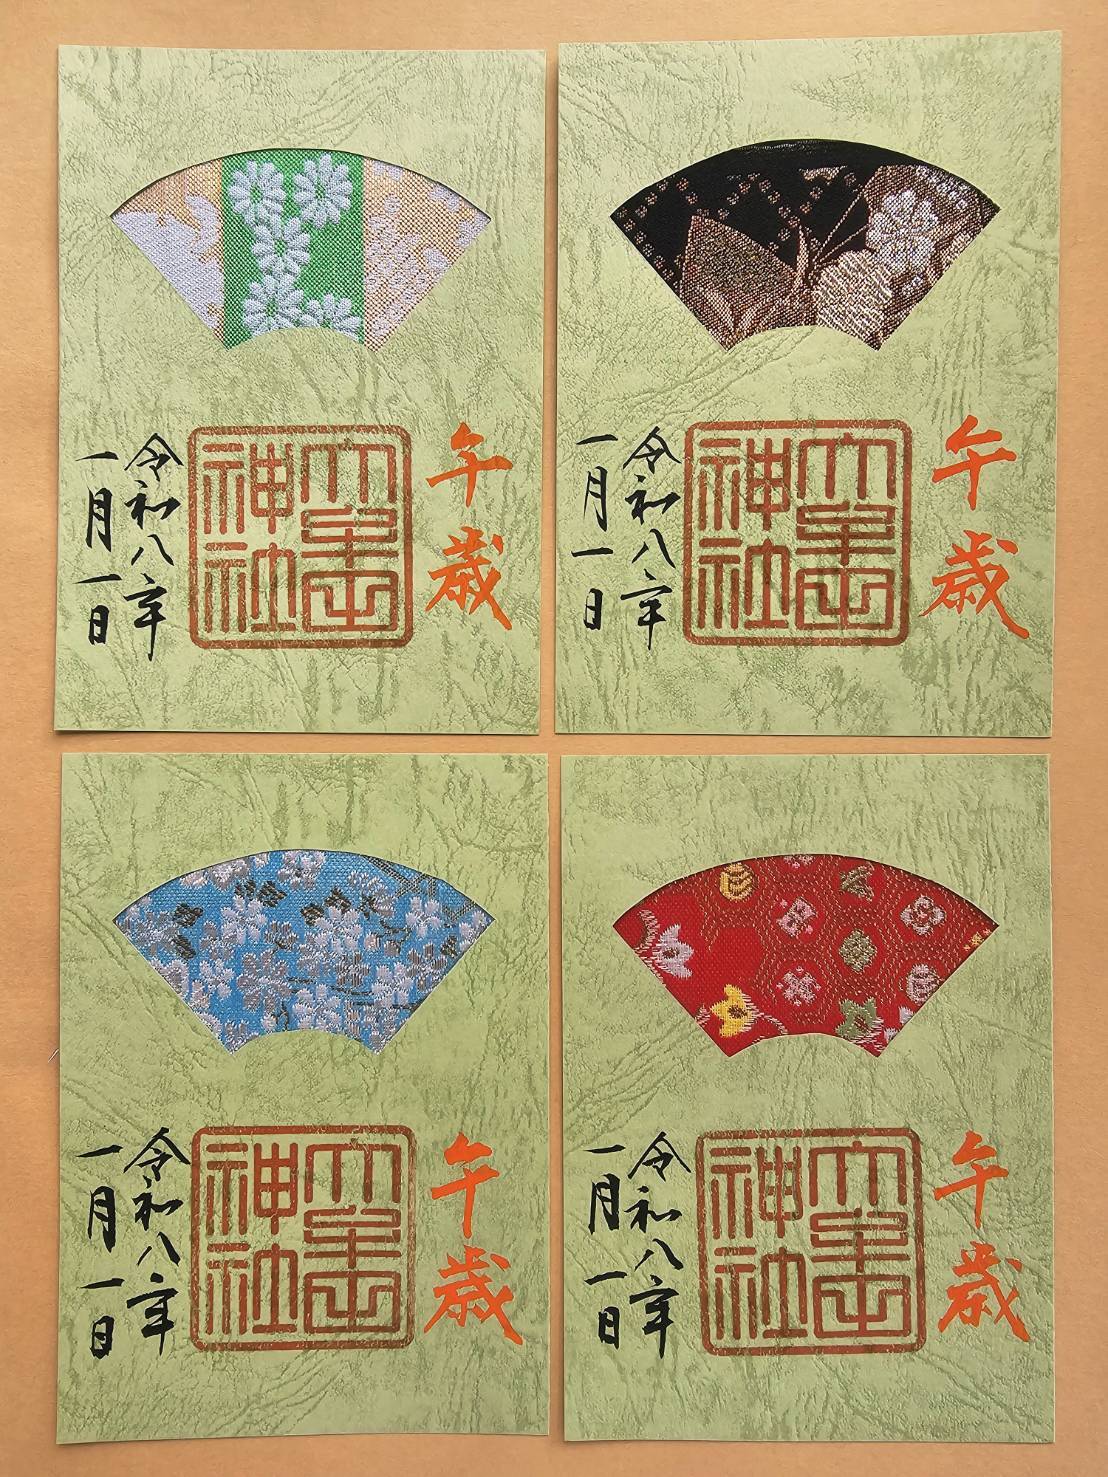 午歳
神社
令和八年
一月一日
午歳
神社
令和八年
一月一日
午歳
神社
令和八年
一月一日
午歳
神社
令和八年
一月一日